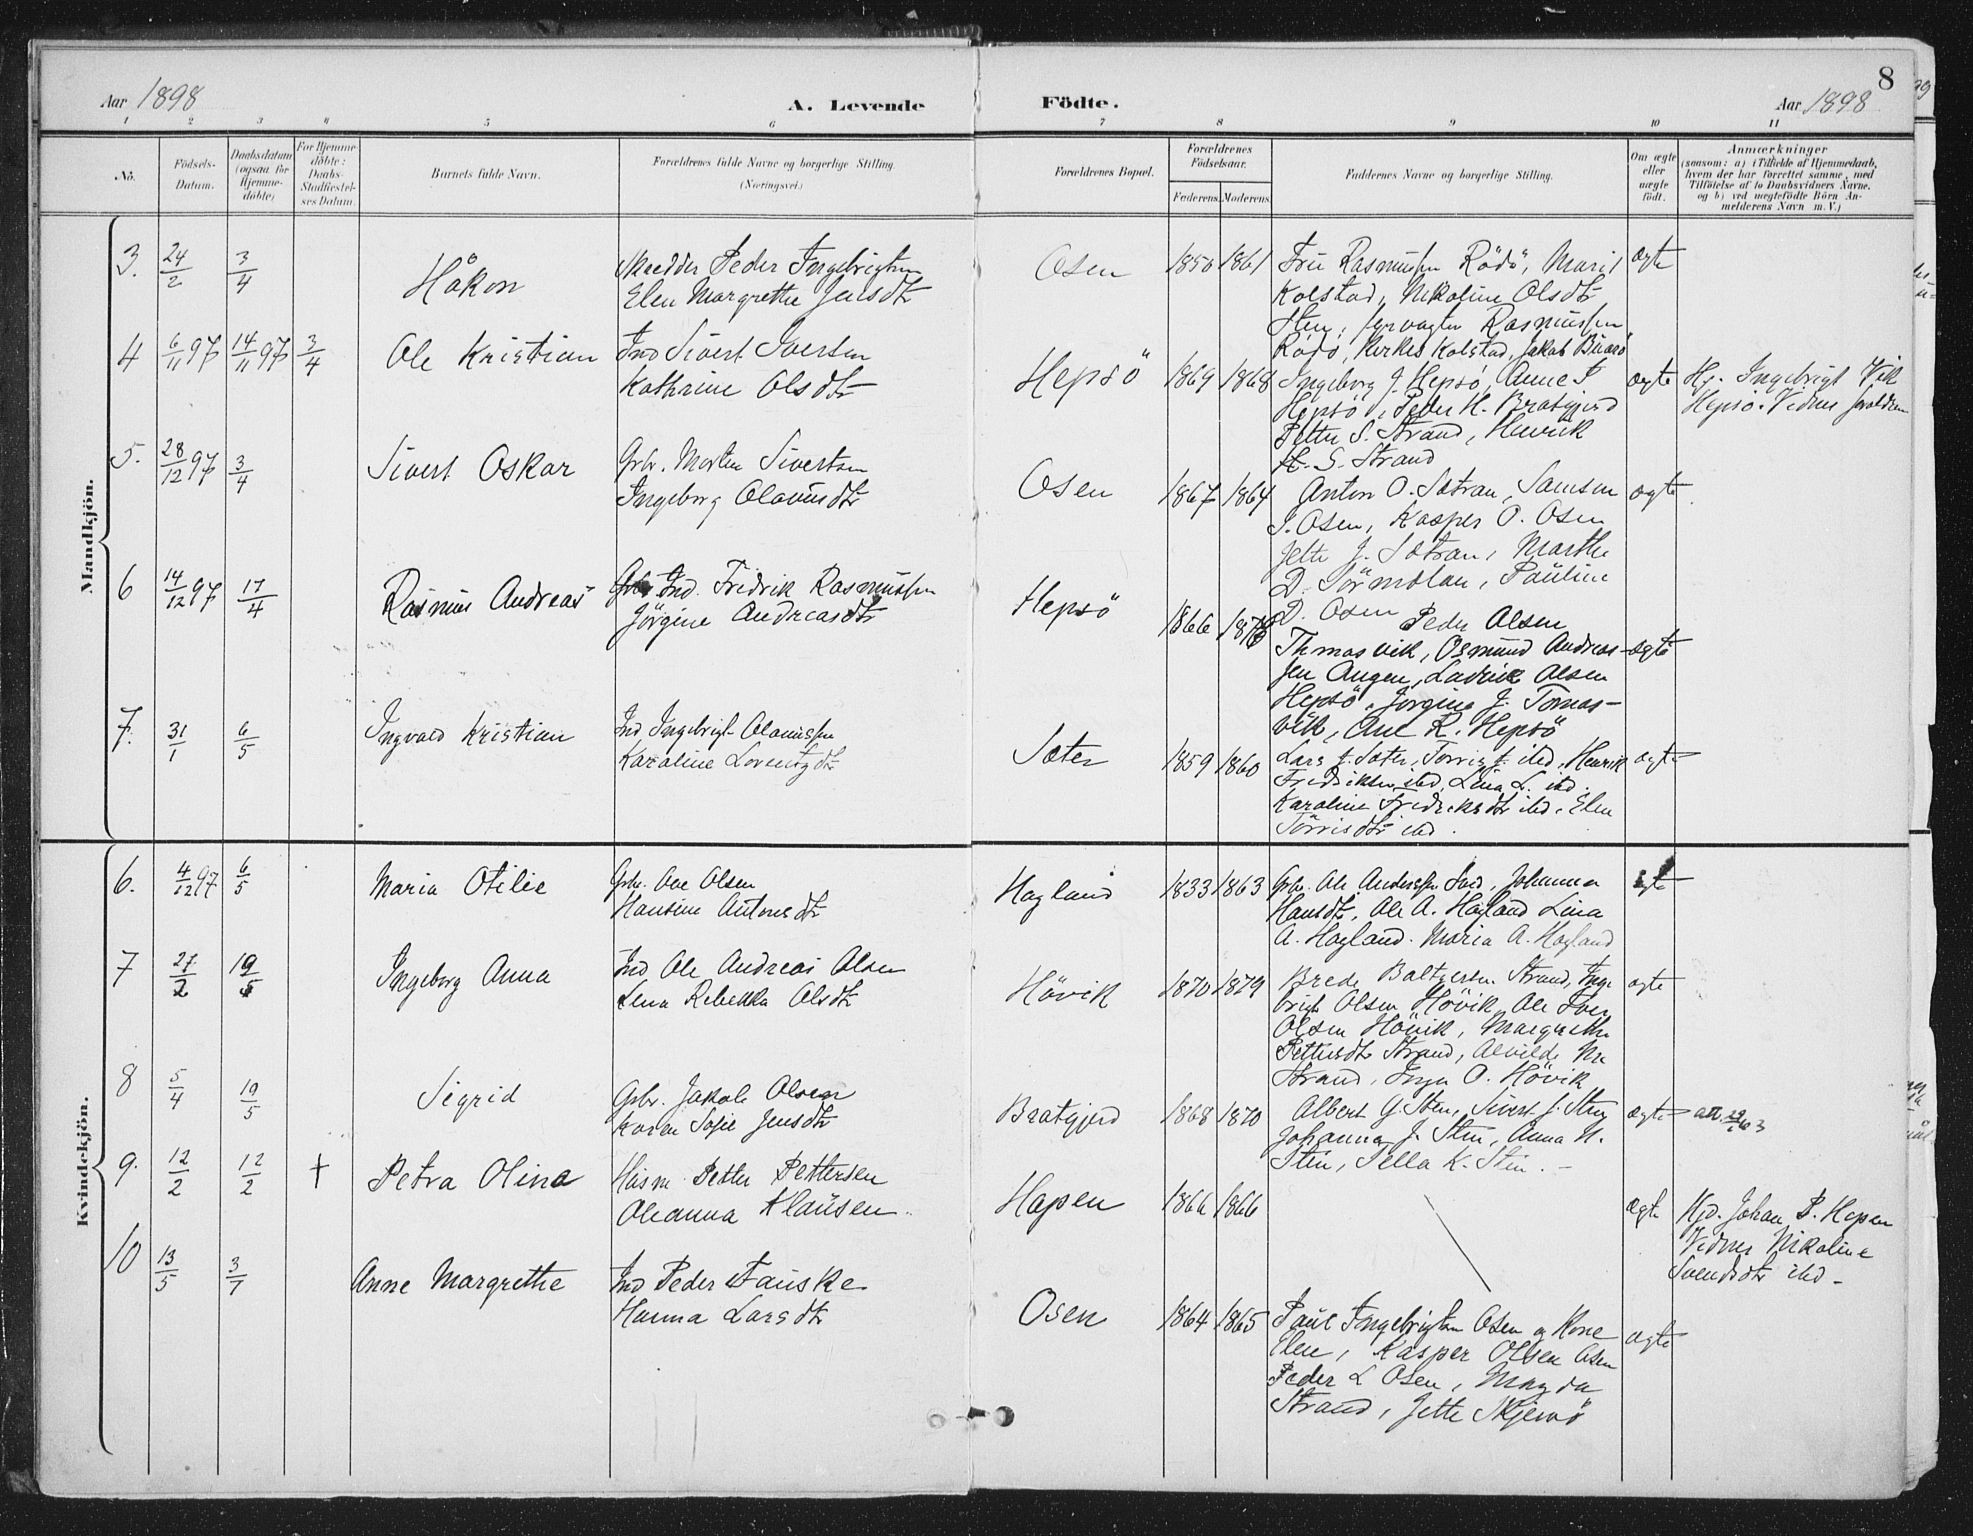 8
Aar 1898
A. Levende
Födte.
Aar 1898
1 2 3 4 5 6 7 8 9 10 11
No.
Födsels-
Datum.
Daabsdatum
(ogsaa for
Hjemme-
döbte)
For Hjemme-
döbte:
Daabs-
Stadfæstel-
ses Datum.
Barnets fulde Navn.
Forældrenes fulde Navne og borgerlige Stilling.
(Næringsvei.)
Forældrenes Bopæl.
Forældrenes
Födselsaar.
Faderens. Moderens.
Faddernes Navne og borgerlige Stilling.
Om ægte
eller
uægte
födt.
Anmærkninger
(saasom: a) i Tilfælde af Hjemmedaab,
hvem der har forrettet samme, med
Tilföielse af to Daabsvidners Navne.
og b) ved uægtefödte Börn An-
melderens Navn m. V.)
Mandkjön.
3. 24/2 3/4 Håkon
Skredder Peder Ingebrigtsen
Elen Margrethe Jensdtr
Osen 1850 1861
Fru Rasmussen Rödö, Marit
Kolstad, Nikoline Olsdtr
Sten, fyrvogter Rasmussen
Rödö, Kirkes Kolstad, Jakob Buarö
ægte
4 6/11 97 14/11 97 3/4 Ole Kristian
Ind Sivert Sivertsen
Kathrine Olsdtr
Hepsö 1869 1868
Ingeborg J. Hepsö, Anne I
Hepsö, Peder H. Bratgjerd
Petter S. Strand, Henrik
H. S. Strand
ægte
Hj. Ingebrigt Vik
Hepsö. Vidner forældrene
5. 28/12 97 3/4 Sivert Oskar
Grbr. Morten Sivertsen
Ingeborg Olavusdtr
Osen 1867 1864
Anton O. Sætran, Samson
I. Osen, Kasper O. Osen
Jette J. Sætran, Marthe
D. Sörmolan, Pauline
D. Osen
ægte
6 14/12 97 17/4 Rasmus Andreas
Gbr Ind. Fridrik Rasmussen
Jörgine Andreasdtr
Hepsö 1866 1876
Peder Olsen
Thomasvik, Osmund Andreas-
sen Angen, Ludvik Olsen
Hepsö, Jörgine J. Tomas-
vik, Ane R. Hepsö
ægte
7. 31/1 6/5 Ingvald Kristian
Ind Ingebrigt Olaussen
Karoline Lorentsdtr
Sæter 1859 1860
Lars J. Sæter, Torris J. ibd, Henrik
Fredriksen ibd, Lina L. ibd.
Karoline Fredriksdtr ibd. Elen
Törrisdtr ibd.
ægte
Kvindekjön.
6. 4/12 97 6/5 Maria Otilie
Gbr. Ole Olsen
Hansine Antonsdtr
Hagland 1833 1863
Gbr. Ole Anderssen Ind, Johanna
Hansdtr, Ole A. Hagland Lina
A. Hagland. Maria A. Hagland
ægte
7 27/2 19/5 Ingeborg Anna
Ind Ole Andreas Olsen
Lena Rebekka Olsdtr
Hövik 1870 1879
Brede Baltzersen Strand, Inge
brigt Olsen Hövik, Ole Iver
Olsen Hövik, Margrethe
Pettersdtr Strand, Alvilde
Strand, Inga O. Hövik
ægte
8 5/4 19/5 Sigrid
Gbr. Jakob Olsen
Karen Sofie Jensdtr
Bratgjerd 1868 1870
Albert G. Sten, Sivert J. Sten
Johanna J. Sten, Anna N.
Sten, Pella K. Sten. –
ægte
9. 12/2 12/2 † Petra Olina
Husm. Petter Pettersen
Oleanna Klausen
Hopen 1866 1866
ægte
Hjd. Johan P. Hopen
Vidner Nikoline
Svendsdtr ibd –
10 13/5 3/7 Anne Margrethe
Ind Peder Fauske
Hanna Larsdtr
Osen 1864 1865
Paul Ingebrigtsen Osen og Kone
Elen, Kasper Olsen Osen
Peder L Osen, Magda
Strand, Jette Skjervö
ægte